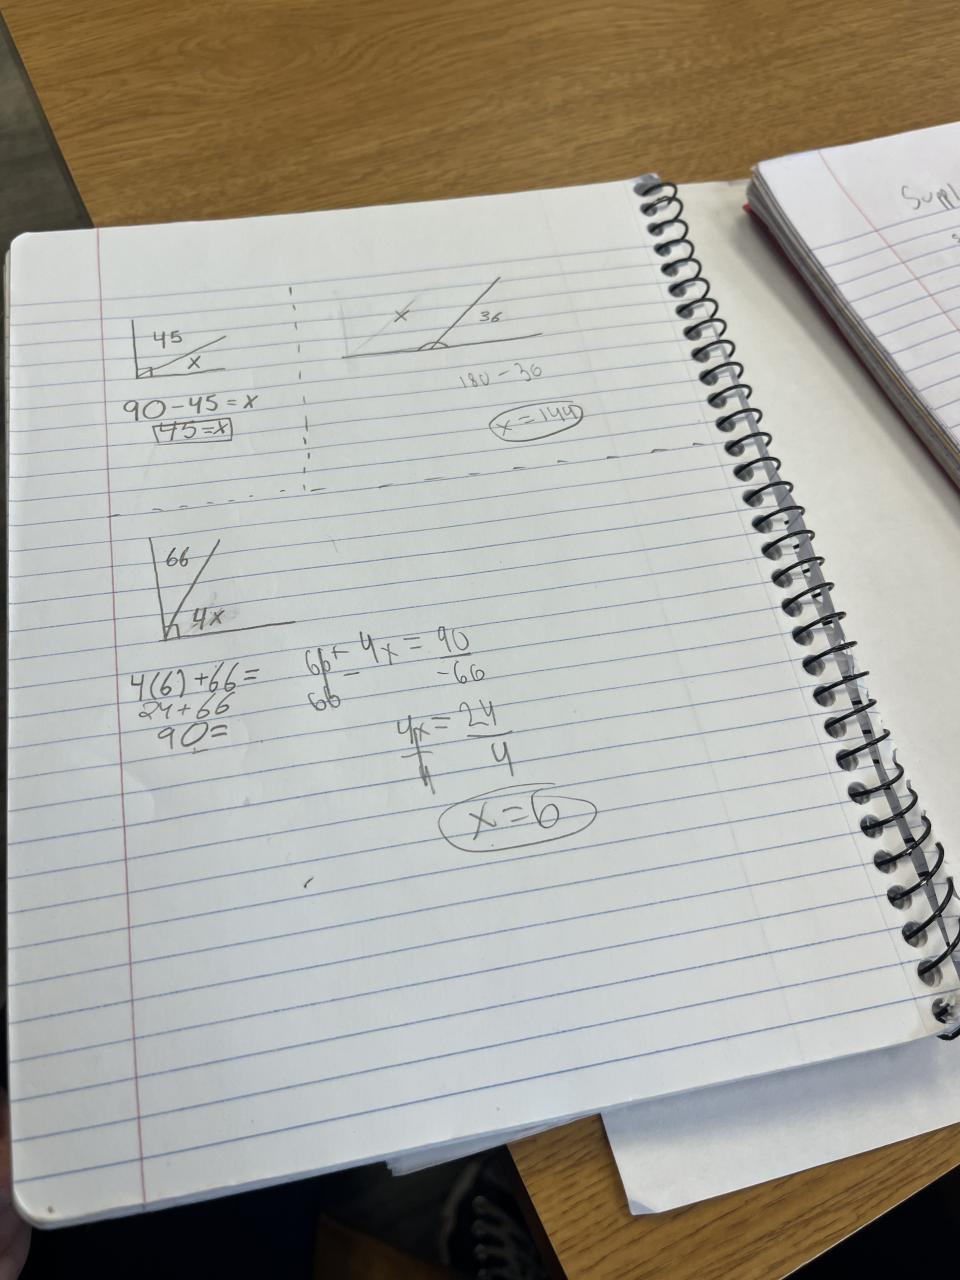 45
x
90 - 45 = x
45 = x
x
36
180 - 36
x = 144
66
4x
4(6) + 66 =
24 + 66
90 =
66 + 4x = 90
66 - -66
4x = 24
4 4
x = 6